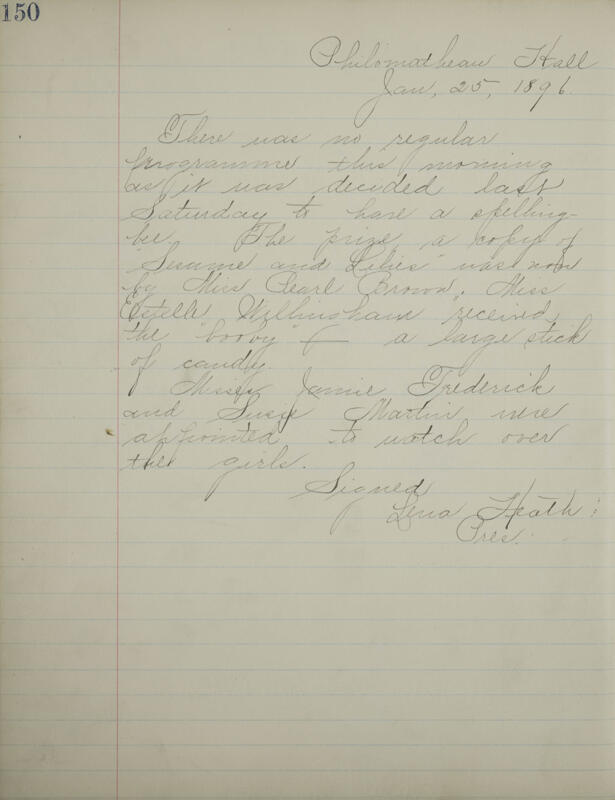 150
Philomathean Hall
Jan, 25, 1896.
There was no regular
programme this morning
as it was decided last
Saturday to have a spelling-
bee. The prize, a copy of
"Sesame and Lilies" was won
by Miss Pearl Brown. Miss
Estelle Willingham received
the "booby" — a large stick
of candy.
Misses Jamie Frederick
and Susie Martin were
appointed to watch over
the girls.
Signed
Lena Heath:
Pres.